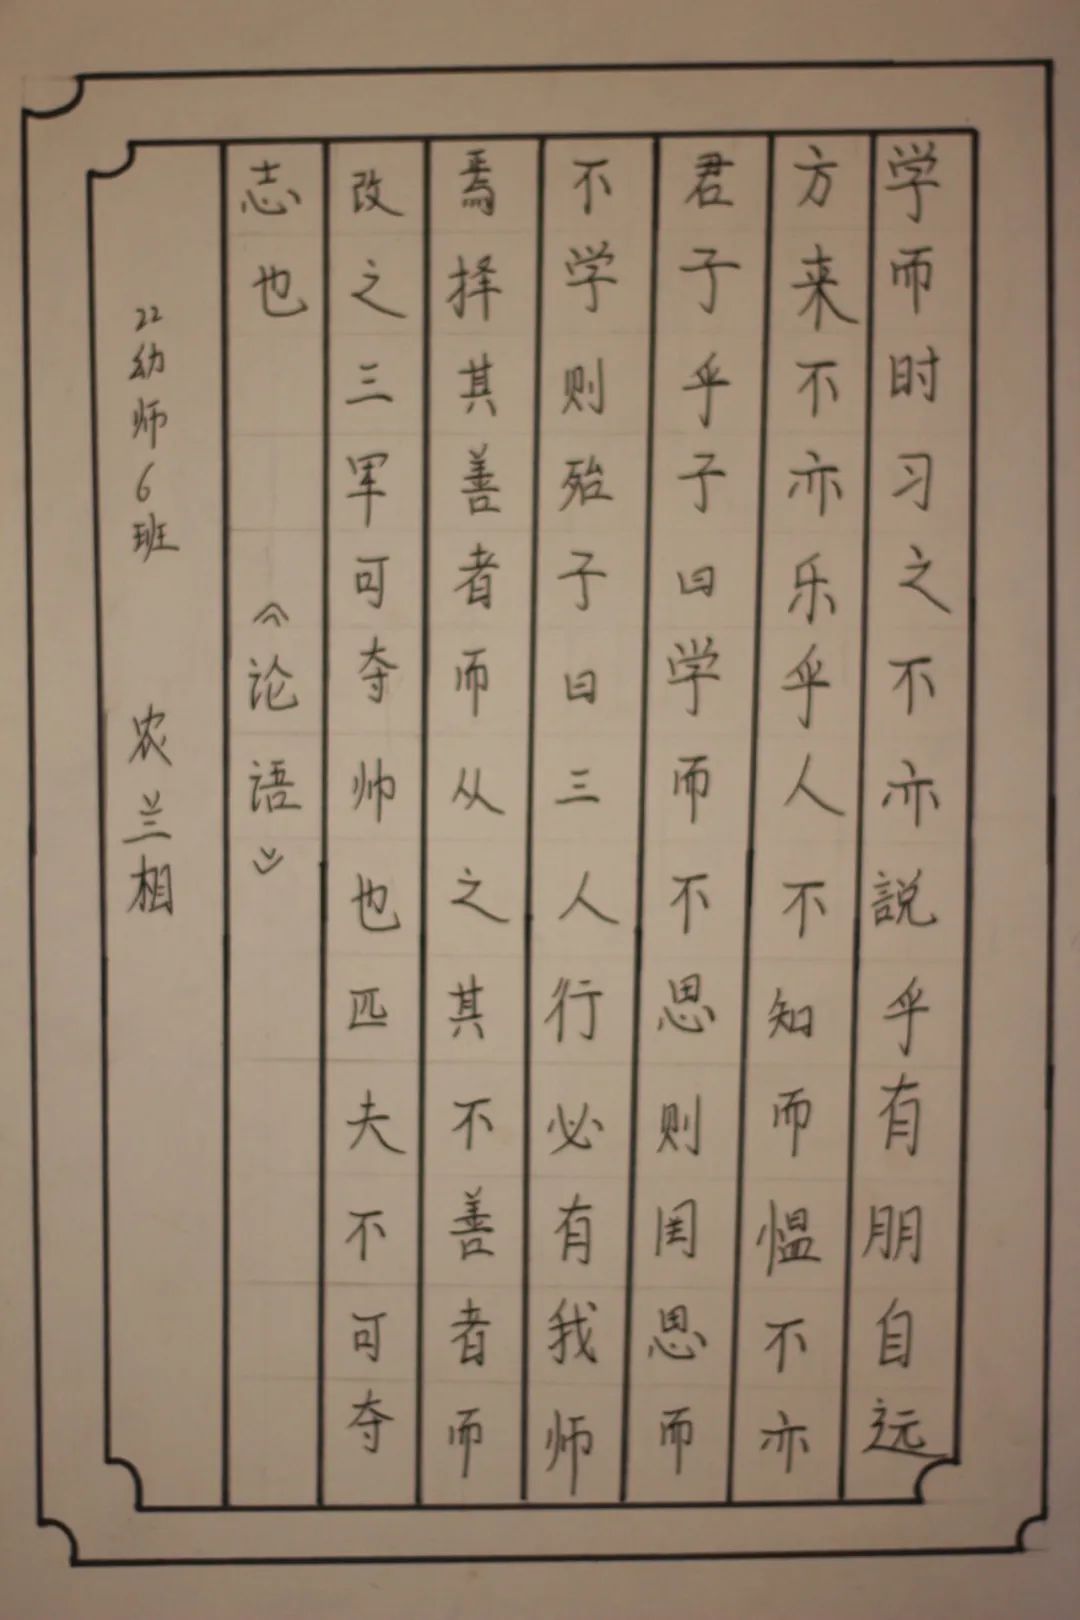 学而时习之不亦説乎有朋自远
方来不亦乐乎人不知而愠不亦
君子乎子曰学而不思则罔思而
不学则殆子曰三人行必有我师
焉择其善者而从之其不善者而
改之三军可夺帅也匹夫不可夺
志也 《论语》
22幼师6班 农兰相